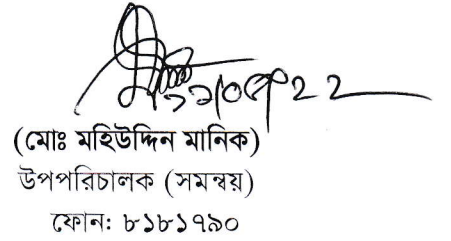 (মোঃ মহিউদ্দিন মানিক)
উপপরিচালক (সমন্বয়)
ফোন: ৮১৮১৭৯০